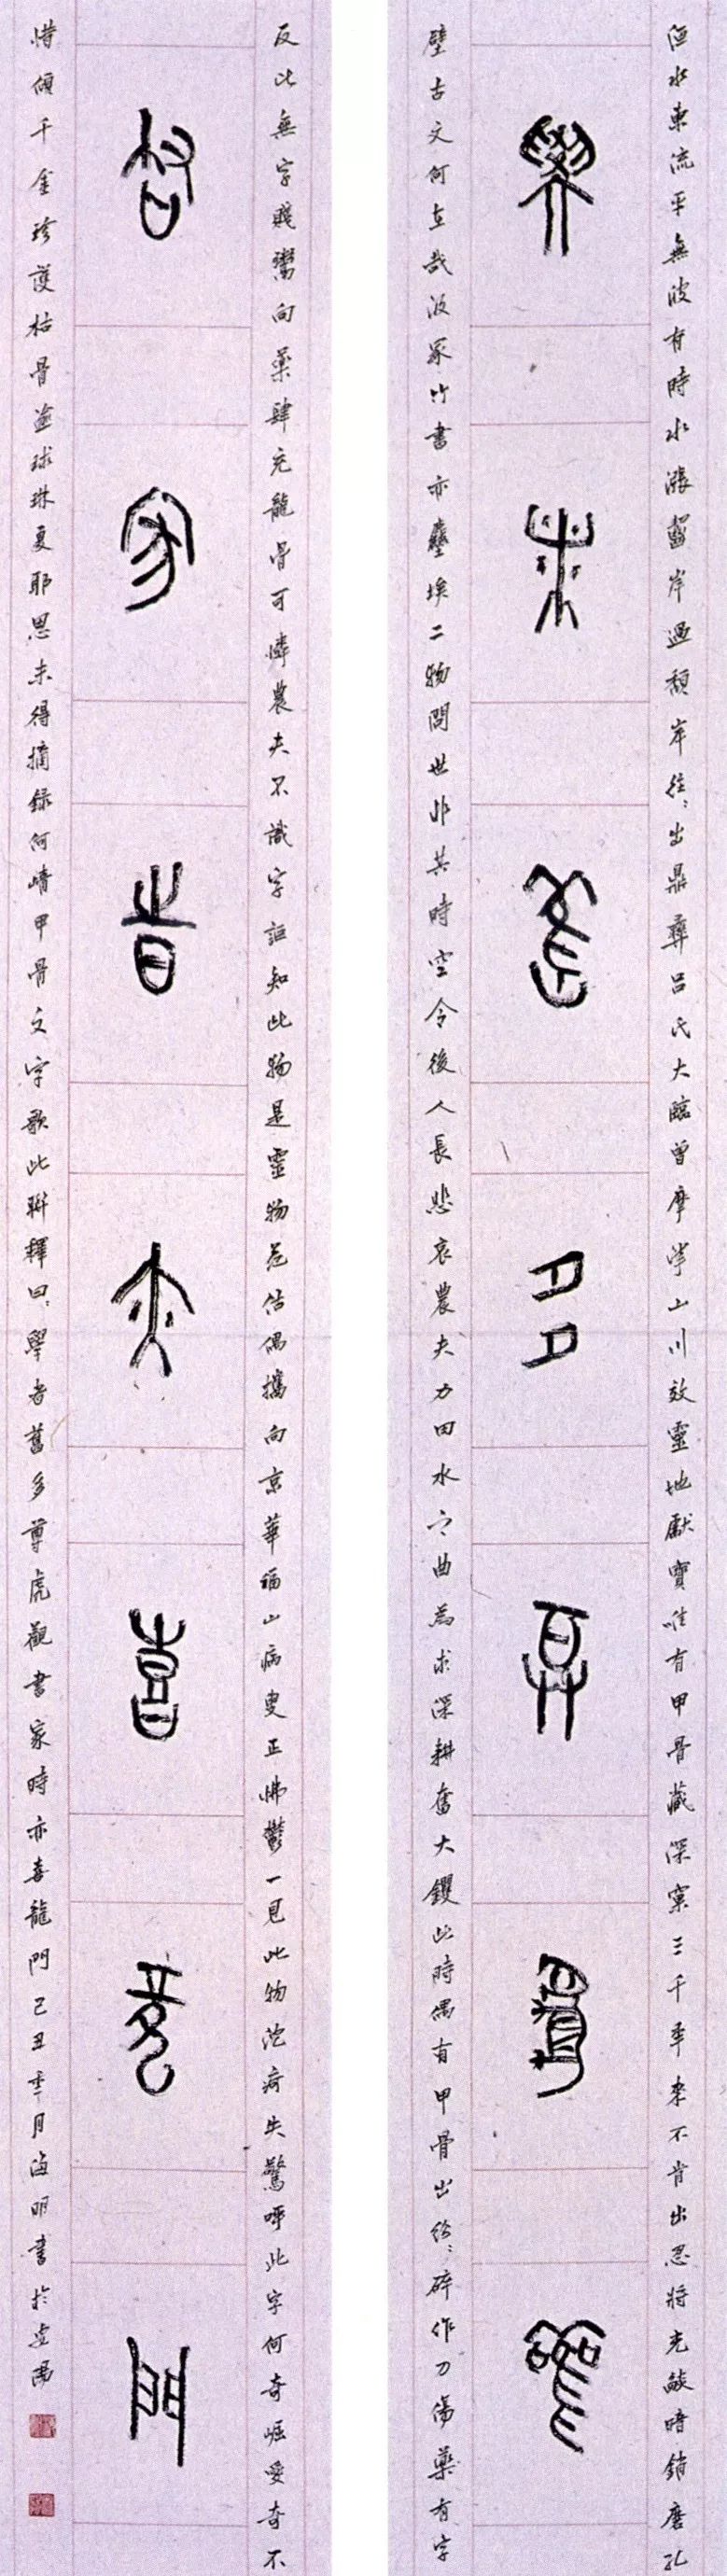 洹水東流平無波有時水漲齧岸過頹岸往々出鼎彝呂氏大臨曾摩挲山川效靈地獻寶唯有甲骨藏深窠三千年來不肯出忍將光燄暗銷磨孔
學者舊多尊虎觀
壁古文何在哉汲冢竹書亦塵埃二物問世非其時空令後人長悲哀農夫力田水之曲為求深耕奮大钁此時偶有甲骨出紛々碎作刀傷藥有字
反比無字賤鬻向藥肆充龍骨可憐農夫不識字詎知此物是靈物范估偶攜向京華福山病叟正怫鬱一見此物沈痾失驚呼此字何奇崛愛奇不
書家時亦喜龍門
惜傾千金珍護枯骨逾球琳夏耶恩未得摘錄何崝甲骨文字歌此聯釋曰學者舊多尊虎觀書家時亦喜龍門己丑年月海明書於安陽